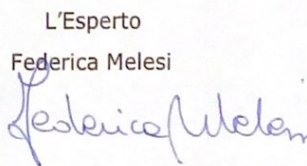 L'Esperto
Federica Melesi
Federica Melesi